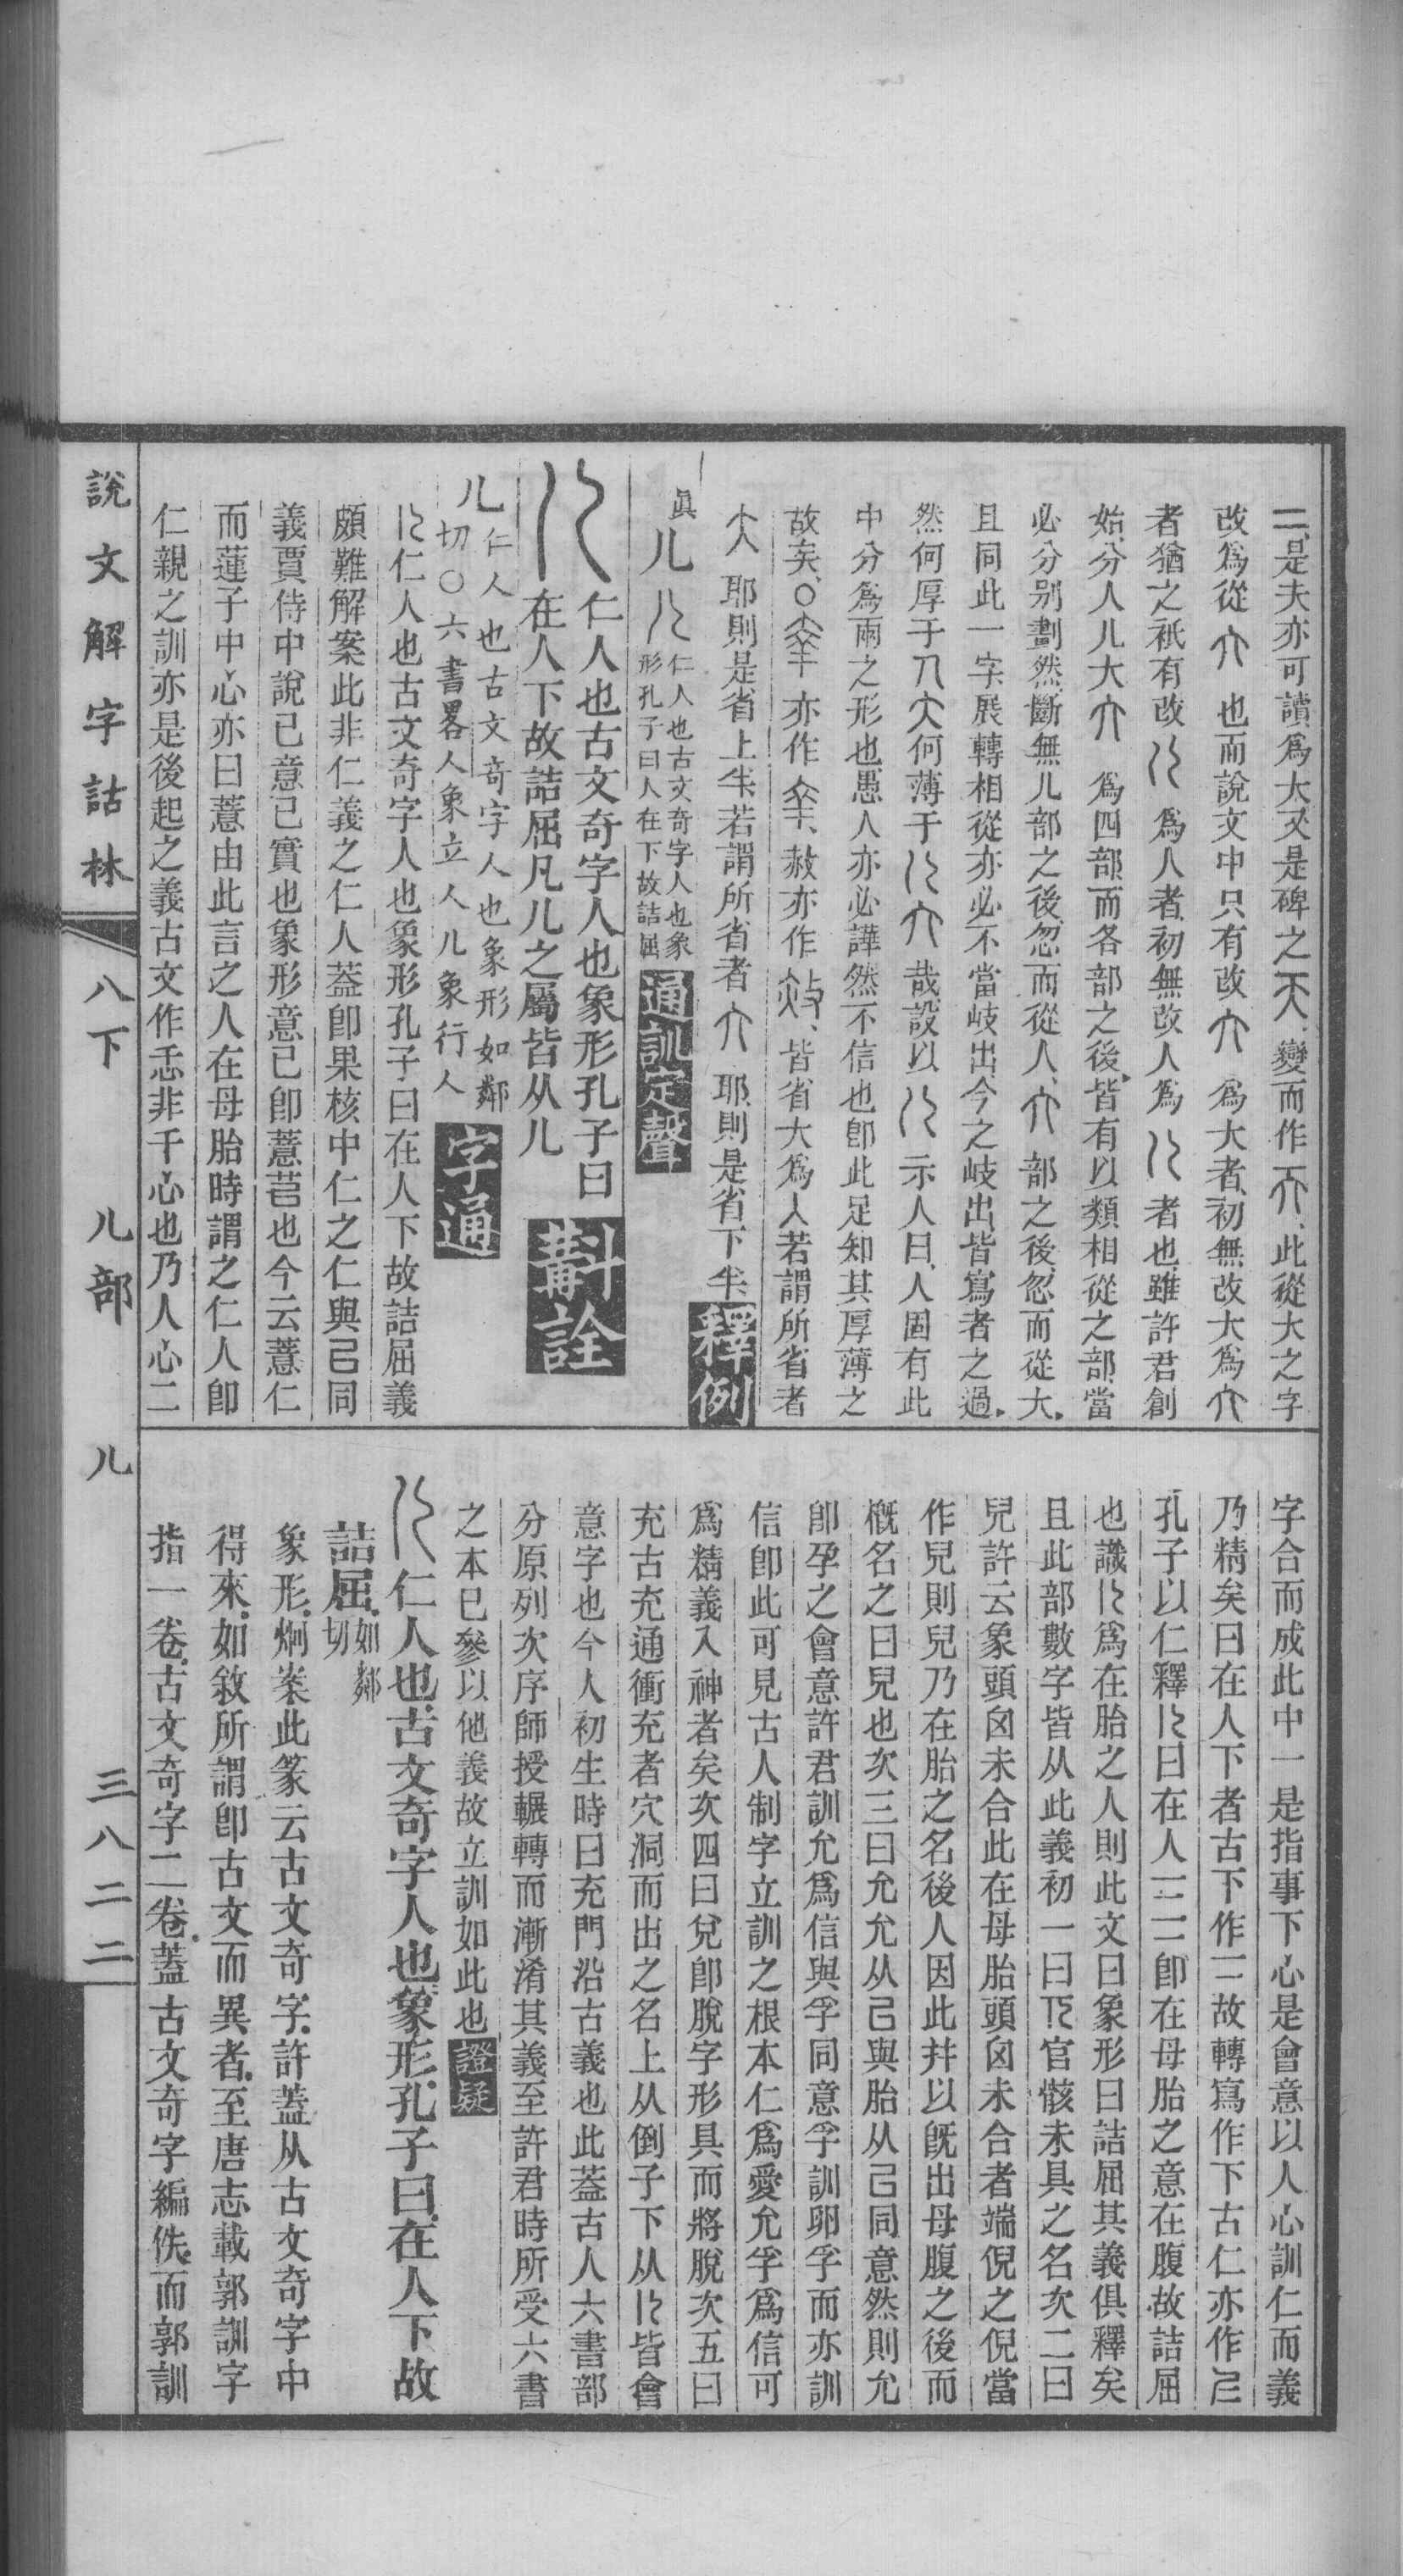 二、是夫亦可讀爲大、又是碑之、變而作、此從大之字
改爲從也、而說文中只有改爲大者、初無改大爲
者、猶之祇有改爲人者、初無改人爲者也、雖許君創
始、分人儿大爲四部、而各部之後、皆有以類相從之部、當
必分别劃然、斷無儿部之後、忽而從人、部之後、忽而從大、
且同此一字、展轉相從、亦必不當岐出、今之岐出、皆寫者之過、
然何厚于何薄于哉、設以示人曰、人固有此
中分爲兩之形也、愚人亦必譁然不信也、卽此足知其厚薄之
故矣、○亦作、赦亦作、皆省大爲人、若謂所省者
耶、則是省上半、若謂所省者耶、則是省下半 釋例
眞 儿 仁人也古文奇字人也象形孔子曰人在下故詰屈 通訓定聲
仁人也古文奇字人也象形孔子曰
在人下故詰屈凡儿之屬皆从儿 斠詮
儿 仁人也古文奇字人也象形如鄰切○六書畧人象立人儿象行人 字通
儿仁人也古文奇字人也象形孔子曰在人下故詰屈義
頗難解案此非仁義之仁人葢卽果核中仁之仁與㠯同
義賈侍中說已意已實也象形意已卽薏苢也今云薏仁
而蓮子中心亦曰薏由此言之人在母胎時謂之仁人卽
仁親之訓亦是後起之義古文作忎非千心也乃人心二
字合而成此中一是指事下心是會意以人心訓仁而義
乃精矣曰在人下者古下作二故轉寫作下古仁亦作𡰥
孔子以仁釋儿曰在人二二卽在母胎之意在腹故詰屈
也識儿爲在胎之人則此文曰象形曰詰屈其義俱釋矣
且此部數字皆从此義初一曰兀官骸未具之名次二曰
兒許云象頭囟未合此在母胎頭囟未合者端倪之倪當
作兒則兒乃在胎之名後人因此幷以旣出母腹之後而
槪名之曰兒也次三曰允允从㠯與胎从㠯同意然則允
卽孕之會意許君訓允爲信與孚同意孚訓卵孚而亦訓
信卽此可見古人制字立訓之根本仁爲愛允孚爲信可
爲精義入神者矣次四曰兌卽脫字形具而將脫次五曰
充古充通衝充者穴洞而出之名上从倒子下从儿皆會
意字也今人初生時曰充門沿古義也此葢古人六書部
分原列次序師授輾轉而漸淆其義至許君時所受六書
之本巳參以他義故立訓如此也 證疑
仁人也古文奇字人也象形孔子曰在人下故
詰屈 如鄰切
象形、炯案此篆云古文奇字、許蓋从古文奇字中
得來、如敘所謂卽古文而異者、至唐志載郭訓字
指一卷、古文奇字二卷、蓋古文奇字編佚、而郭訓
說文解字詁林 八下 儿部 儿 三八二二